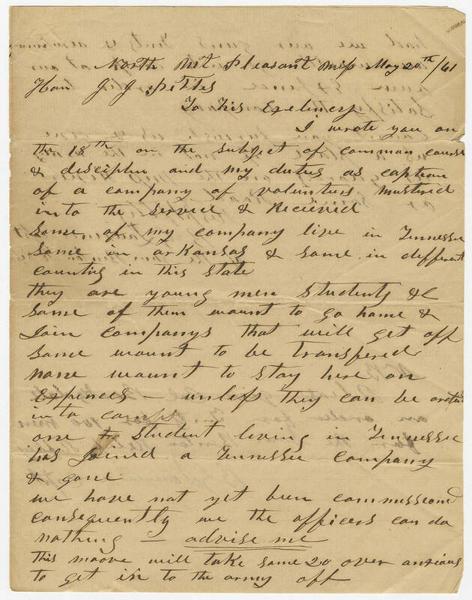 North Mt Pleasant Miss May 20th /61
Hon J. J. Pettus
To His Exelincy
I wrote you on
the 18th on the subject of common course
& disciplin and my duties as captian
of a company of volunteers mustried
into the service & Recieved
Some of my company live in Tennessee
Some in arkansas & some in different
countus in this State
they are young men Students &C
Some of them waunt to go home &
Join companys that will get off
Some waunt to be transfered
none waunt to stay here on
Expences - unless they can be
into camps
one student living in Tennessee
has joined a Tennessee company
& gone
we have not yet been commissiond
consequently we the officers can do
nothing - advise me
This moove will take some 20 over anxious
to get in to the army off